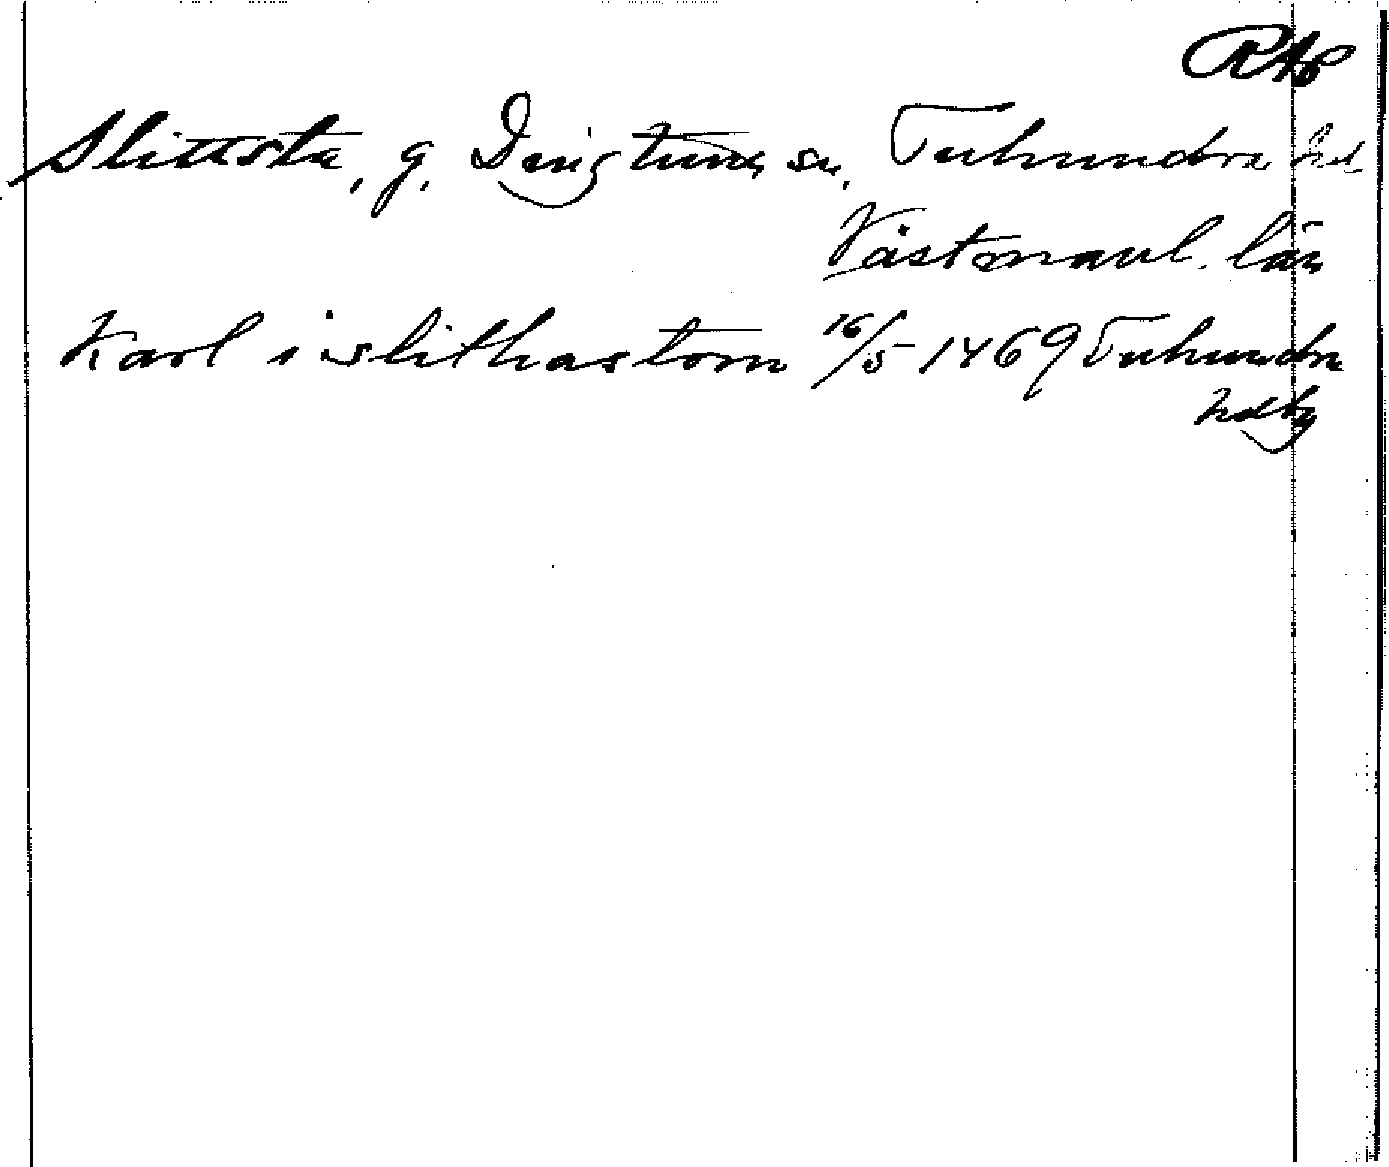 RAP
Slittsta, g. Dingtuna sn, Tuhundra hd
Västmanl. län
Karl i slithastom 16/5 1469 Tuhundra
hdtg